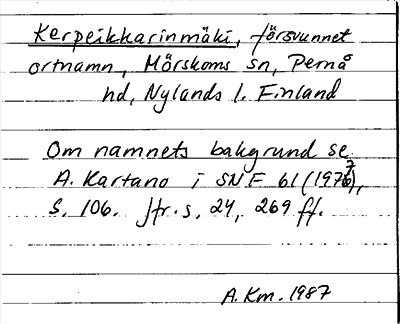 Kerpeikkarinmäki, försvunnet
ortnamn, Mörskoms sn, Pernå
hd, Nylands l. Finland
Om namnets bakgrund se
A. Kartano i SNF 61 (1977),
s. 106. Jfr s. 24, 269 ff.
A. Km. 1987